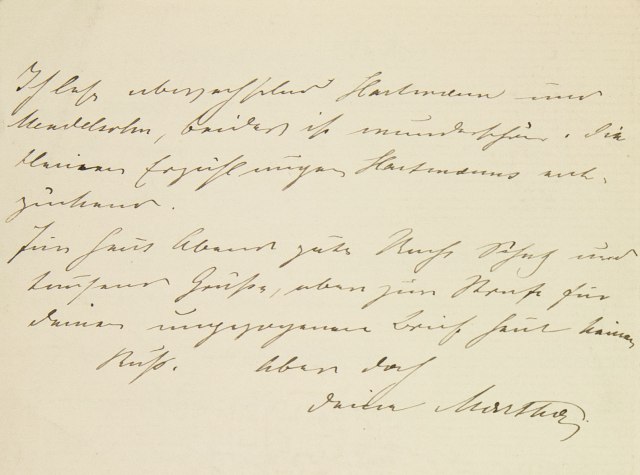 Ich lese abwechselnd Hartmann und
Mendelsohn, beides ist wunderschön. Die
kleinen Erzählungen Hartmanns ent-
zückend.
Für heut Abend gute Nacht Schatz und
tausend Grüße, aber zur Strafe für
deinen ungezogenen Brief heut keinen
Kuß. Aber doch
deine Martha.